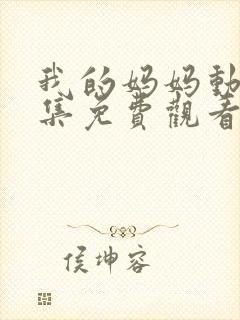 我的妈妈動
集免費觀看
侯坤容